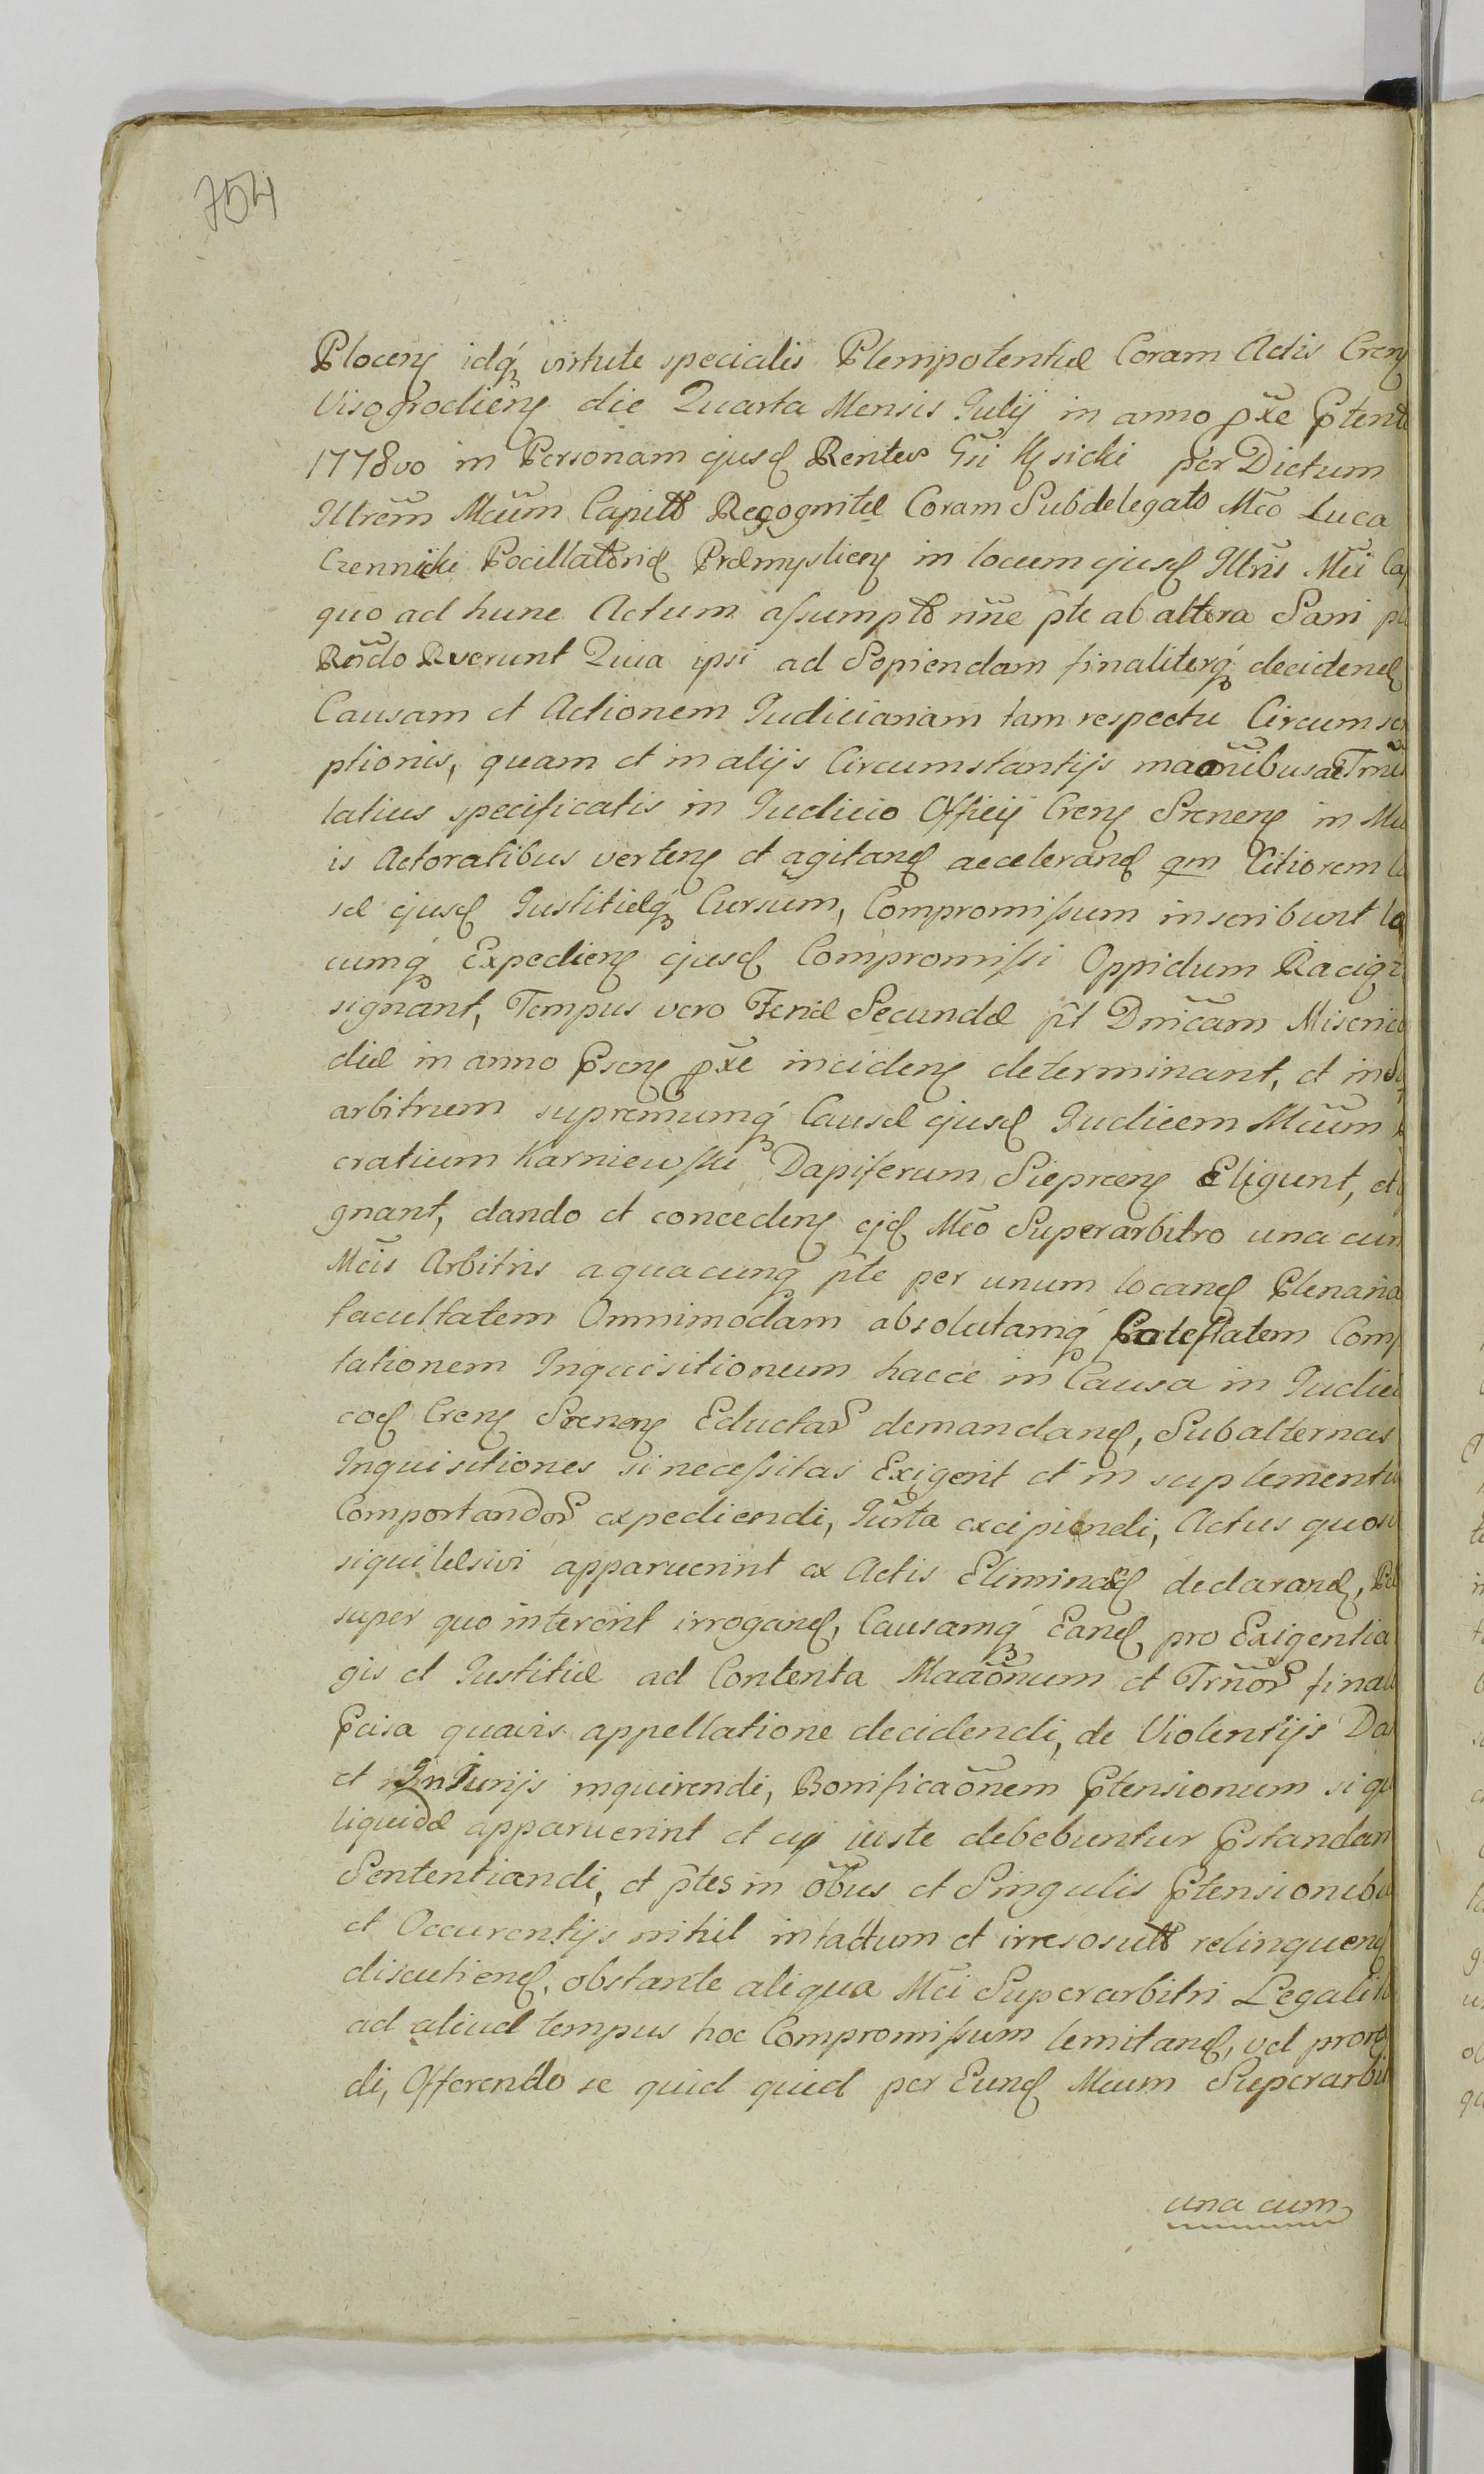 754
Plocen idq₃ virtute specialis Plenipotentiæ Coram Actis Cren
Visogrodien die Quarta Mensis Julij in anno pxe Ptent
1778vo in Personam ejusd Rentis Gsi Ksicki per Dictum
Illrem Mcum Capitt Recognitæ Coram Subdelegato Mco Luca
Czennicki Pocillatorid Præmyslien in locum ejusd Illris Mci Ca
quo ad hunc Actum assumpto nne pte ab altera Sani
Rndo Rverunt Quia ipsi ad Sopiendam finaliterq₃ decidend
Causam et Actionem Judiciariam tam respectu Circumsc
ptionis, quam et in alijs Circumstantijs maonibus ac Trmis
latius specificatis in Judicio Officij Cren Srenen in Mu
is Actoratibus verten et agitand accelerand qm Citiorem
sæ ejusd Justitiæq₃ Cursum, Compromissum inscribunt lo
cumq₃ Expedien ejusd Compromissi Oppidum Raciąz
signant, Tempus vero Feriæ Secundæ pt Dnicam Miserico
diæ in anno Psen pxe inciden determinant, et in
arbitrum supremumq₃ Causæ ejusd Judicem Mcum
cratium Karniewski Dapiferum Sieprcen Eligunt, et
gnant, dando et conceden ejd Mco Superarbitro una cum
Mcis Arbitris a quacunq pte per unum locand Plenaria
facultatem Omnimodam absolutamq₃ Potestatem Comp
tationem Inquisitionum hacce in Causa in Judici
cod Cren Srenen Eductar demandand, Subalternas
Inquisitiones si necessitas Exigerit et in suplementu
Comportandor expediendi, Jurta excipiendi, Actus quosv
siqui læsivi apparuerint ex Actis Eliminad declarand,
super quo intererit irrogand, Causamq₃ Eand pro Exigentia
gis et Justitiæ ad Contenta Maaonum et Trnor final
Pcisa quavis appellatione decidendi, de Violentijs Da
et Injurijs inquirendi, Bonificaonem Ptensionum si qu
liquidæ apparuerint et cuj iuste debebuntur Pstandam
Sententiandi, et ptes in obus et Singulis Ptensionibu
et Occurentijs nihil intactum et irresolutt relinquend
discutiend, obstante aliqua Mci Superarbitri Legalit
ad aliud tempus hoc Compromissum lemitand, vel prorog
di, Offerendo se quid quid per Eund Mcum Superarbit
una cum